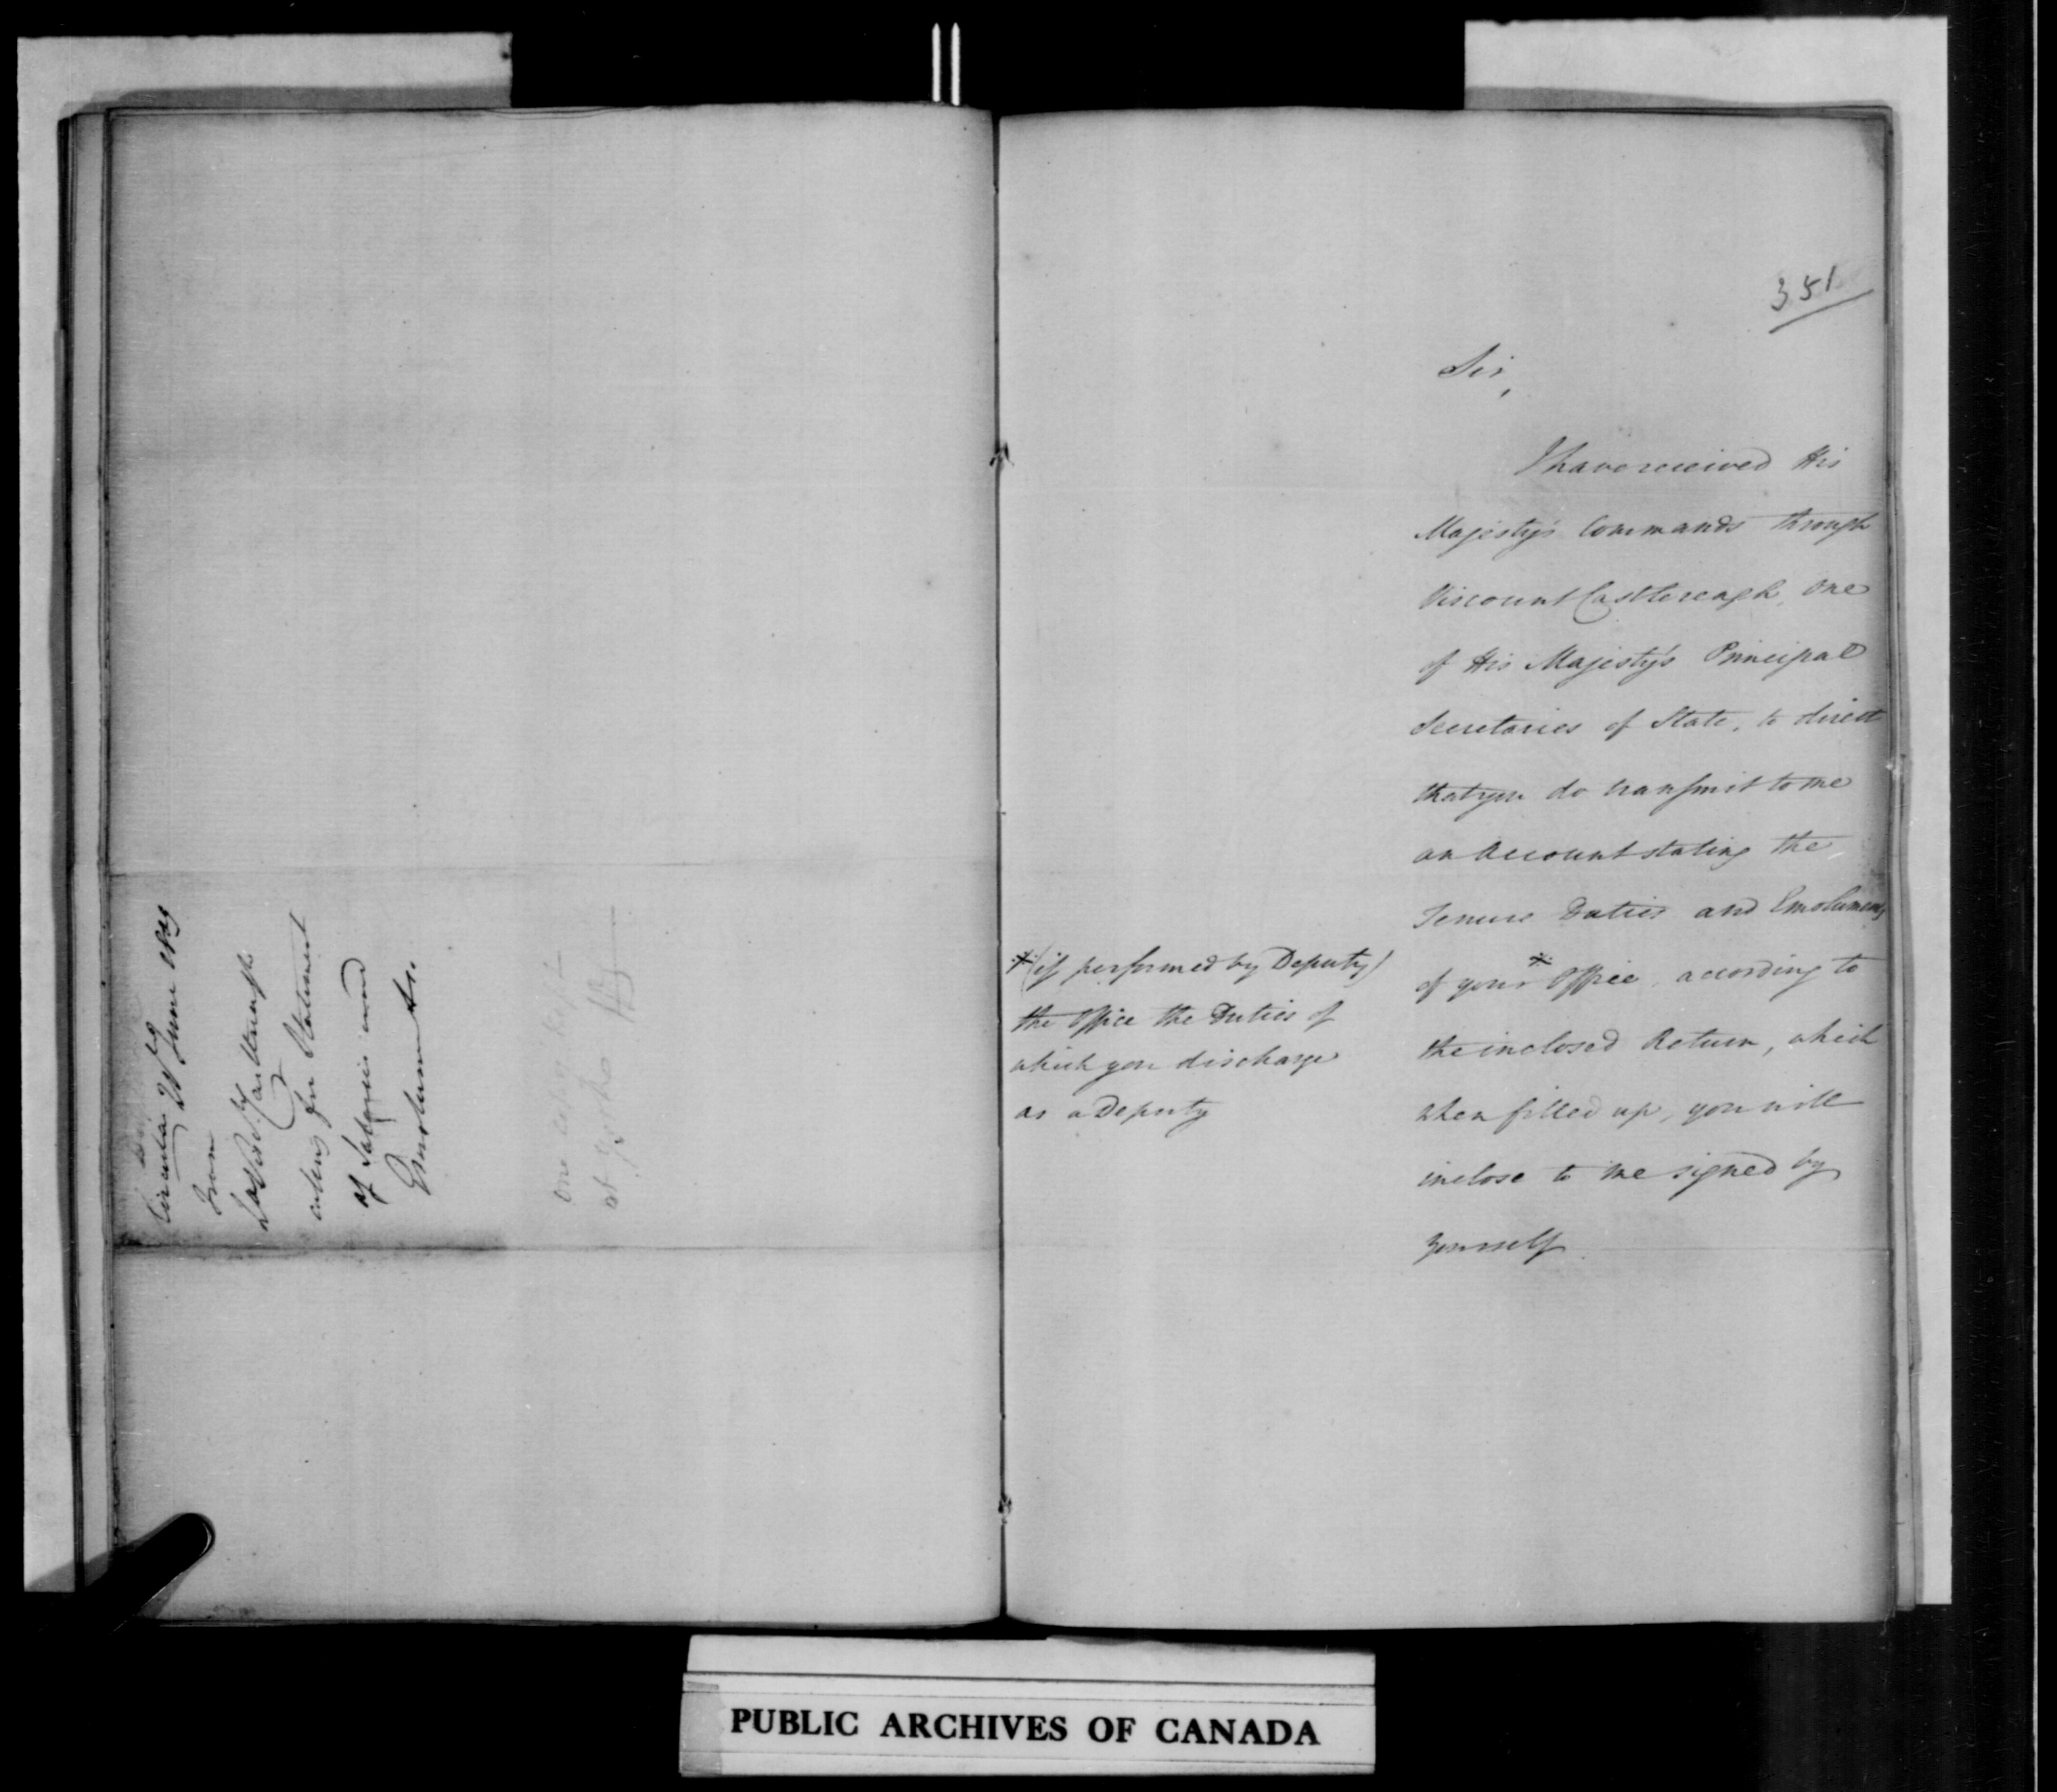 Circular
June 1809
from
Castlereagh
calling for Statement
of Salaries and
Emoluments.
351
Sir,
I have received His
Majesty's Commands through
Viscount Castlereagh, one
of His Majesty's Principal
Secretaries of State, to direct
that you do transmit to me
an Account stating the
Tenure Duties and Emoluments
of your * Office, according to
the inclosed Return, which
when filled up, you will
inclose to me signed by
yourself.
* (if performed by Deputy)
the Office the Duties of
which you discharge
as a Deputy
PUBLIC ARCHIVES OF CANADA